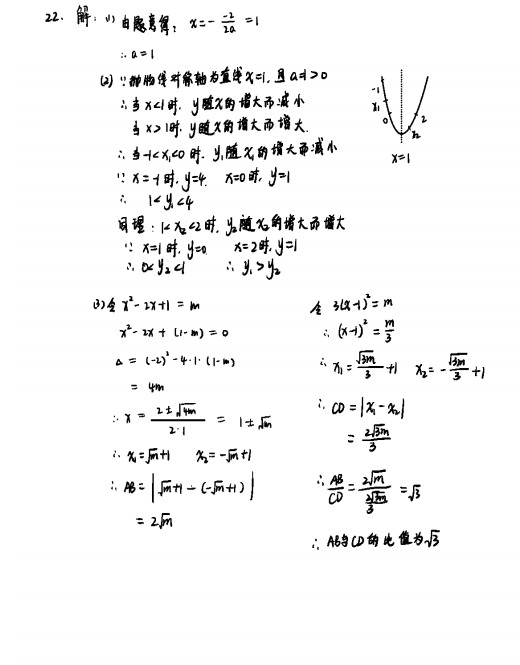 22. 解: (1) 由题意得: x = - \frac{-2}{2a} = 1
∴ a = 1
(2) ∵ 抛物线对称轴为直线x=1, 且 a=1>0
∴ 当 x<1 时, y随x的增大而减小
当 x>1时, y随x的增大而增大.
∴ 当-1<x₁<0 时, y₁随x₁的增大而减小
∵ x=-1时, y=4. x=0时, y=1
∴ 1<y₁<4
同理: 1<x₂<2时, y₂随x₂的增大而增大
∵ x=1时, y=0 x=2时, y=1
∴ 0<y₂<1 ∴ y₁>y₂
-1
x₁
0
2
x₂
x=1
(3) 令 x²-2x+1 = m
x²-2x+(1-m) = 0
Δ = (-2)²-4·1·(1-m)
= 4m
∴ x = \frac{2±\sqrt{4m}}{2·1} = 1±\sqrt{m}
∴ x₁=\sqrt{m}+1 x₂=-\sqrt{m}+1
∴ AB = |\sqrt{m}+1-(-\sqrt{m}+1)|
= 2\sqrt{m}
令 3(x-1)² = m
∴ (x-1)² = \frac{m}{3}
∴ x₁ = \frac{\sqrt{3m}}{3}+1 x₂ = -\frac{\sqrt{3m}}{3}+1
∴ CD = |x₁-x₂|
= \frac{2\sqrt{3m}}{3}
∴ \frac{AB}{CD} = \frac{2\sqrt{m}}{\frac{2\sqrt{3m}}{3}} = \sqrt{3}
∴ AB与CD的比值为\sqrt{3}